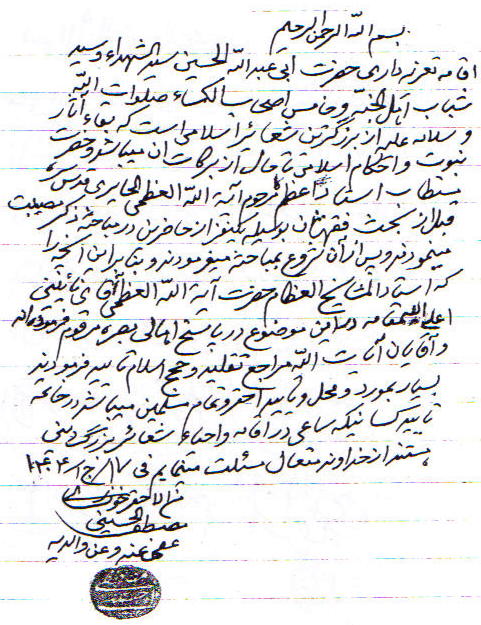 بسم الله الرحمن الرحیم
اقامه تعزیه داری حضرت ابی عبدالله الحسین سید الشهداء و سید
شباب اهل الجنة و خامس اصحاب الکساء صلوات الله
و سلامه علیه از بزرگترین شعائر اسلامی است که بقاء آثار
نبوت و احکام اسلامی تا حال از برکات آن میباشد و حضرت
مستطاب استاد اعظم مرحوم آیة الله العظمی الحایری قدس سره
قبل از بحث فقهشان بوسیله یکنفر از حاضرین در مباحثه ذکر مصیبت
مینمودند و پس از آن شروع بمباحثه میفرمودند و بنابراین آنچه را
که استاد المشایخ العظام حضرت آیة الله العظمی آقای نائینی
اعلی الله مقامه در این موضوع در پاسخ اهالی بصره مرقوم فرموده‌اند
و آقایان آیات الله مراجع تقلید و حجج اسلام تایید فرمودند
بسیار بمورد و محل و تایید احقر و تمام مسلمین میباشد در خاتمه
تایید کسانیکه ساعی در اقامه و احیاء شعائر بزرگ دینی
هستند از خداوند متعال مسئلت مینمایم فی ۱۷/ج۱/
الاحقر
مصطفی الحسینی
عفی عنه و عن والدیه